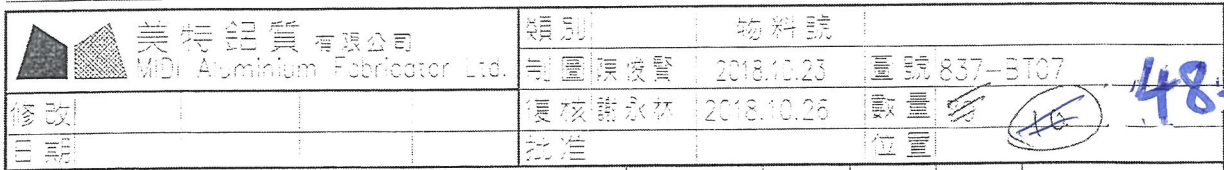 美特鋁質有限公司
MiDi Aluminium Fabricator Ltd.
類別 物料號
制圖 陳俊賢 2018.10.23 圖號 837-BT07
修改 復核 謝永林 2018.10.26 數量 48
日期 批准 位置